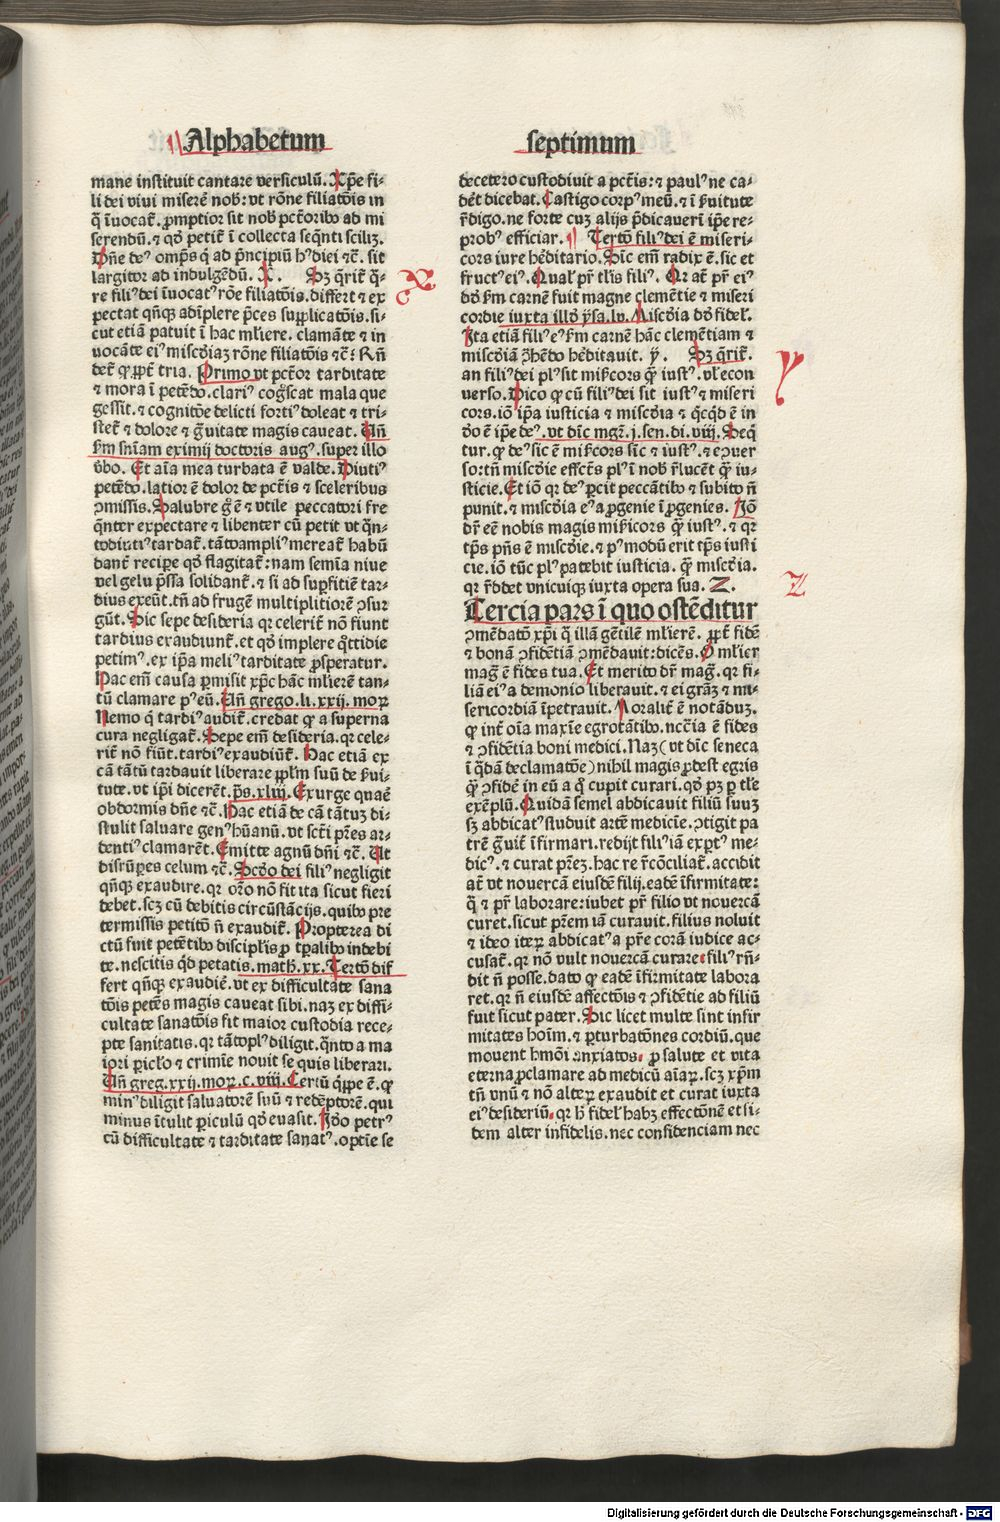 Alphabetum
septimum
mane instituit cantare versiculũ. Xp̃e fi⸗
li dei vivi miserẽ nob: vt rõne filiatõis in
q̃ ĩuocat̃. ꝓmptior sit nob pctõribꝰ ad mi
serendũ. ⁊ qđ petit̃ ĩ collecta seq̃nti scilicꝫ.
Dñe deꝰ omp̃s q̃ ad p̃ncipiũ hꝰ diei ⁊c̃. sit
largitor ad indulgẽdũ. X. Sꝫ q̃rit̃ q̃⸗
re filiꝰ dei ĩuocatꝰ rõe filiatõis. differt ⁊ ex
pectat qñqꝫ adĩplere p̃ces supplicatõis. si⸗
cut etiã patuit ĩ hac mĩiere. clamãte ⁊ in
uocãte eiꝰ miscđiaꝫ rõne filiatõis ⁊c̃: Rñ
det̃ ꝙ ꝓpt̃ tria. Primo vt pctõr tarditate
⁊ mora ĩ petẽdo. clariꝰ cog̃scat mala que
gessit. ⁊ cognitõe delicti fortiꝰ doleat ⁊ tri⸗
stet̃ ⁊ dolore ⁊ g̃uitate magis caueat. Uñ
k̃m sñiam eximij doctoris augꝰ. super illo
v̾bo. Et aĩa mea turbata ẽ valde. Diutiꝰ
petẽdo. latior ẽ dolor de pctĩs ⁊ sceleribus
ꝯmissis. Salubre g̃ ẽ ⁊ vtile peccatori fre
q̃nter expectare ⁊ libenter cũ petit vt q̃n⸗
to diutiꝰ tardat̃. tãto ampliꝰ mereat̃ habũ
dant̃ recipe qđ flagitat̃: nam semĩa niue
vel gelu p̃ssa solidant̃. ⁊ si ad suꝑfitiẽ tar⸗
dius exeũt. tñ ad frugẽ multiplitiorẽ ꝯsur
gũt. Sic sepe desideria qr celerit̃ nõ fiunt
tardius exaudiunt̃. et qđ implere q̃ttidie
petimꝰ. ex ip̃a meliꝰ tarditate ꝓsperatur.
Hac em̃ causa ꝑmisit xp̃c hãc mĩierẽ tan⸗
tũ clamare pꝰ eũ. Uñ grego. li. xxij. moꝝ
Nemo q̃ tardiꝰ audit̃. credat ꝙ a superna
cura negligat̃. Sepe em̃ desideria. qr cele⸗
rit̃ nõ fiũt. tardiꝰ exaudiũt̃. Hac etiã ex
cã tãtũ tardauit liberare ppl̃m suũ de k̃ui⸗
tute. vt ip̃i dicerẽt. p̃s. xliij. Exurge quaẽ
obdormis dñe ⁊c̃. Hac etiã de cã tãtuꝫ di⸗
stulit saluare genꝰ hũanũ. vt sct̃i pr̃es ar⸗
dentiꝰ clamarẽt. Emitte agnũ dñi ⁊c̃. Ut
disrũpes celum ⁊c̃. Scđo dei filiꝰ negligit
qñqꝫ exaudire. qr or̃o nõ fit ita sicut fieri
debet. scꝫ cũ debitis circũstãcijs. quibꝰ pre
termissis petitõ ñ exaudit̃. Propterea di
ctũ fuit petẽtibꝰ disciplĩs ꝓ tp̃alibꝰ indebi
te. nescitis qđ petatis. math. xx. Tertõ dif
fert qñqꝫ exaudiẽ. vt ex difficultate sana
tõis petẽs magis caueat sibi. naꝫ ex diffi⸗
cultate sanatõis fit maior custodia rece⸗
pte sanitatis. qr tãto plꝰ diligit. q̃nto a ma
iori ꝑiclo ⁊ crimĩe nouit se quis liberari.
Uñ greg. xxij. moꝝ. c. viij. Certũ q̃ppe ẽ. ꝙ
minꝰ diligit saluatorẽ suũ ⁊ redẽptorẽ. qui
minus ĩtulit ꝑiculũ qđ euasit. Iđo petrꝰ
cũ difficultate ⁊ tarditate sanatꝰ. optĩe se
decetero custodiuit a pctĩs: ⁊ paulꝰ ne ca⸗
dẽt dicebat. Castigo corpꝰ meũ. ⁊ ĩ k̃uitute
r̃digo. ne forte cuꝫ alijs p̃dicauerĩ ip̃e re⸗
probꝰ efficiar. ¶ Tertõ filiꝰ dei ẽ miseri⸗
cors iure hẽditario. Sic em̃ radix ẽ. sic et
fructꝰ eiꝰ. Qualꝰ pr̃ tl̃is filiꝰ. Qr at̃ pr̃ eiꝰ
đo k̃m carnẽ fuit magne clemẽtie ⁊ miseri
cordie iuxta illđ ysa. lv. Miscđia đo fidel̃.
Ita etiã filiꝰ eꝰ k̃m carnẽ hãc clemẽtiam ⁊
miscđiã ꝓhẽdo hẽditauit. y. Sꝫ q̃rit̃.
an filiꝰ dei plꝰ sit mik̃cors q̃ꝫ iustꝰ. vl̃ econ
uerso. Dico ꝙ cũ filiꝰ dei sit iustꝰ ⁊ miseri
cors. iõ ip̃a iusticia ⁊ miscđia ⁊ qcqđ ẽ in
đo ẽ ip̃e deꝰ. vt dĩc mgr̃. j. sen. di. viij. Seq̃
tur. ꝙ deꝰ sic ẽ mik̃cors sic ⁊ iustꝰ. ⁊ eꝯuer
so: tñ miscđie effect̃s plꝰ ĩ nob r̃lucẽt q̃ꝫ iu⸗
sticie. Et iõ qr deꝰ ꝑcit peccãtibꝰ ⁊ subito ñ
punit. ⁊ miscđia eꝰ a ꝓgenie ĩ ꝓgenies. Iõ
dr̃ eẽ nobis magis mik̃icors q̃ꝫ iustꝰ. ⁊ qr
tp̃s p̃ns ẽ miscđie. ⁊ pꝰ modũ erit tp̃s iusti
cie. iõ tũc plꝰ patebit iusticia. q̃ꝫ miscđia.
qr r̃ddet vnicuiqꝫ iuxta opera sua. Z.
Tercia pars ĩ quo ostẽditur
ꝯmẽdatõ xp̃i q̃ illã gẽtilẽ mĩierẽ. ꝓpt̃ fidẽ
⁊ bonã ꝯfidẽtiã ꝯmẽdauit: dicẽs. O mĩier
mag̃ ẽ fides tua. Et merito dr̃ mag̃. qr fi⸗
liã eiꝰ a demonio liberauit. ⁊ ei gr̃aꝫ ⁊ mi⸗
sericordiã ĩpetrauit. Moralit̃ ẽ notãduꝫ.
ꝙ int̃ oĩa maxĩe egrotãtibꝰ. nccĩa ẽ fides
⁊ ꝯfidẽtia boni medici. Naꝫ (vt dĩc seneca
ĩ q̃dã declamatõe) nihil magis ꝓdest egris
q̃ꝫ ꝯfidẽ in eũ a q̃ cupit curari. qđ pꝫ ꝑ tl̃e
exẽplũ. Quidã semel abdicauit filiũ suuꝫ
sꝫ abdicatꝰ studuit artẽ medicĩe. ꝯtigit pa
trẽ g̃uit̃ ĩfirmari. redijt filiꝰ iã exp̃tꝰ me⸗
dicꝰ. ⁊ curat pr̃eꝫ. hac re r̃cõciliat̃. accidit
at̃ vt nouercã eiusdẽ filij. eadẽ ĩfirmitate:
q̃ ⁊ pr̃ laborare: iubet pr̃ filio vt nouercã
curet. sicut pr̃em iã curauit. filius noluit
⁊ ideo iteꝝ abdicatꝰ a pr̃e corã iudice ac⸗
cusat̃. qr nõ vult nouercã curare. filiꝰ rñ⸗
dit ñ posse. dato ꝙ eadẽ ĩfirmitate labora
ret. qr ñ eiusdẽ affectõis ⁊ ꝯfidẽtie ad filiũ
fuit sicut pater. Sic licet multe sint infir
mitates hoĩm. ⁊ ꝑturbatõnes cordiũ. que
mouent hmõi anxiatos. ꝓ salute et vita
eterna ꝓclamare ad medicũ aĩaꝝ. scꝫ xp̃m
tñ vnũ ⁊ nõ alteꝝ exaudit et curat iuxta
eiꝰ desideriũ. qr hꝰ fidel̃ habꝫ effectõnẽ et fi⸗
dem alter infidelis. nec confidenciam nec
X
y
Z
Digitalisierung gefördert durch die Deutsche Forschungsgemeinschaft - DFG